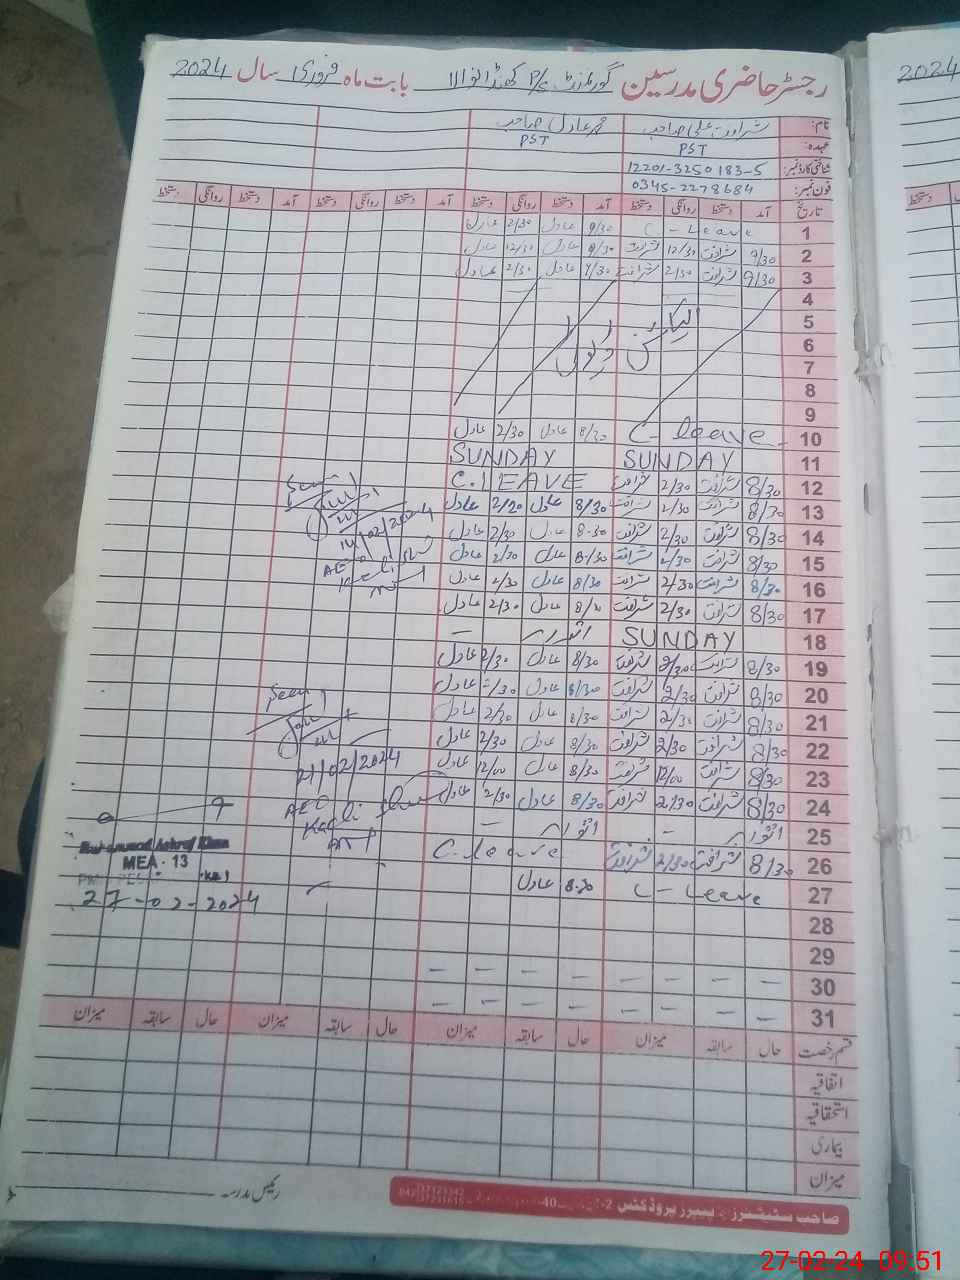 رجسٹر حاضری مدرسین گورنمنٹ P/S کھنڈانوالا بابت ماہ فروری سال 2024
2024
نام: شرافت علی صاحب محمد عادل صاحب
عہدہ: PST PST
شناختی کارڈ نمبر: 12201-3250183-5
فون نمبر: 0345-2278684
تاریخ آمد دستخط روانگی دستخط آمد دستخط روانگی دستخط آمد دستخط روانگی دستخط آمد دستخط روانگی دستخط
1 C-Leave 9/30 عادل 2/30 عادل
2 9/30 شرافت 12/30 شرافت 9/30 عادل 12/30 عادل
3 9/30 شرافت 2/30 شرافت 9/30 عادل 2/30 عادل
4
5 الیکشن
6
7
8
9
10 C-leave 8/30 عادل 2/30 عادل
11 SUNDAY SUNDAY
12 8/30 شرافت 2/30 شرافت C.LEAVE
13 8/30 شرافت 2/30 شرافت 8/30 عادل 2/20 عادل
14 8/30 شرافت 2/30 شرافت 8-30 عادل 2/30 عادل
15 8/30 شرافت 2/30 شرافت 8/30 عادل 2/30 عادل
16 8/30 شرافت 2/30 شرافت 8/30 عادل 2/30 عادل
17 8/30 شرافت 2/30 شرافت عادل 2/30 عادل
18 SUNDAY اتوار
19 8/30 شرافت 2/30 شرافت 8/30 عادل 2/30 عادل
20 8/30 شرافت 2/30 شرافت 8/30 عادل عادل
21 8/30 شرافت 2/30 شرافت 8/30 عادل 2/30 عادل
22 8/30 شرافت 2/30 شرافت 8/30 عادل 2/30 عادل
23 8/30 شرافت 12/00 شرافت 8/30 عادل 12/00 عادل
24 8/30 شرافت 2/30 شرافت 8/30 عادل 2/30 عادل
25 اتوار اتوار
26 8/30 شرافت 2/30 شرافت C.leave
27 C-Leave 8-30 عادل
28
29
30 - - - - - - - -
31 - - - - - - - -
Seen
14/02/2024
AEO
Seen
21/02/2024
AEO
Muhammad Ashraf Khan
MEA-13
27-02-2024
قسم رخصت حال سابقہ میزان حال سابقہ میزان حال سابقہ میزان حال سابقہ میزان
اتفاقیہ
استحقاقیہ
بیماری
میزان
رئیس مدرسہ
صاحب سٹیشنرز پیپر پروڈکٹس
27-02-24 09:51